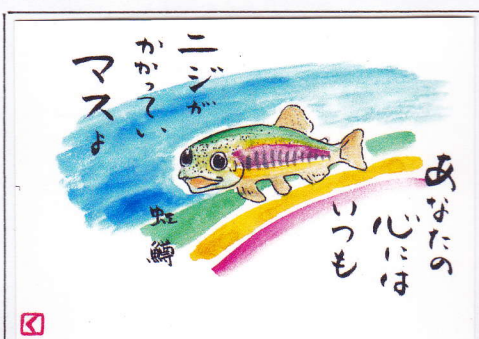 あなたの
心には
いつも
ニジが
かかってい
マスよ
虹鱒
く